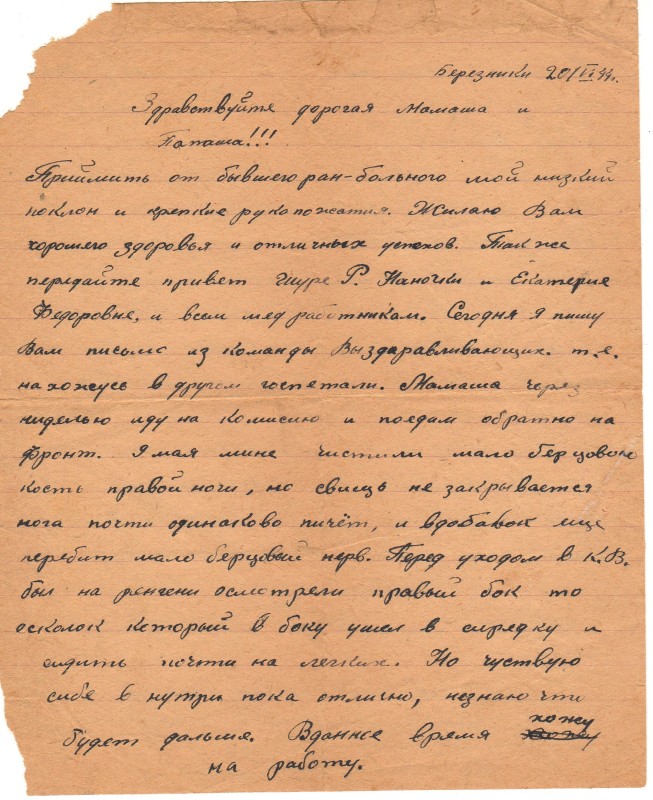 Березники 20/VI 44г.
Здравствуйте дорогая Мамаша и
Папаша!!!
Приймить от бывшего ран-больного мой низкий
поклон и крепкие рукопожатия. Жилаю Вам
хорошего здоровья и отличных успехов. Также
передайте привет Шуре Р. Наночки и Екатерие
Федоровне, и всем мед работникам. Сегодня я пишу
Вам письмо из команды Выздаравливающих. т.е.
нахожусь в другом госпетали. Мамаша через
ниделью иду на комисию и поедам обратно на
фронт. 9 мая мине чистили мало берцовою
кость правой ноги, но свищь не закрывается
нога почти одинаково пичёт, и вдобавок еще
перебит мало берцовый нерв. Перед уходом в К.В.
был на ренгени осмотрели правый бок то
осколок который в боку ушел в сиредку и
сидить почти на легких. Но чуствую
сибе внутри пока отлично, незнаю что
будет дальше. Вданнее время хожу
на работу.